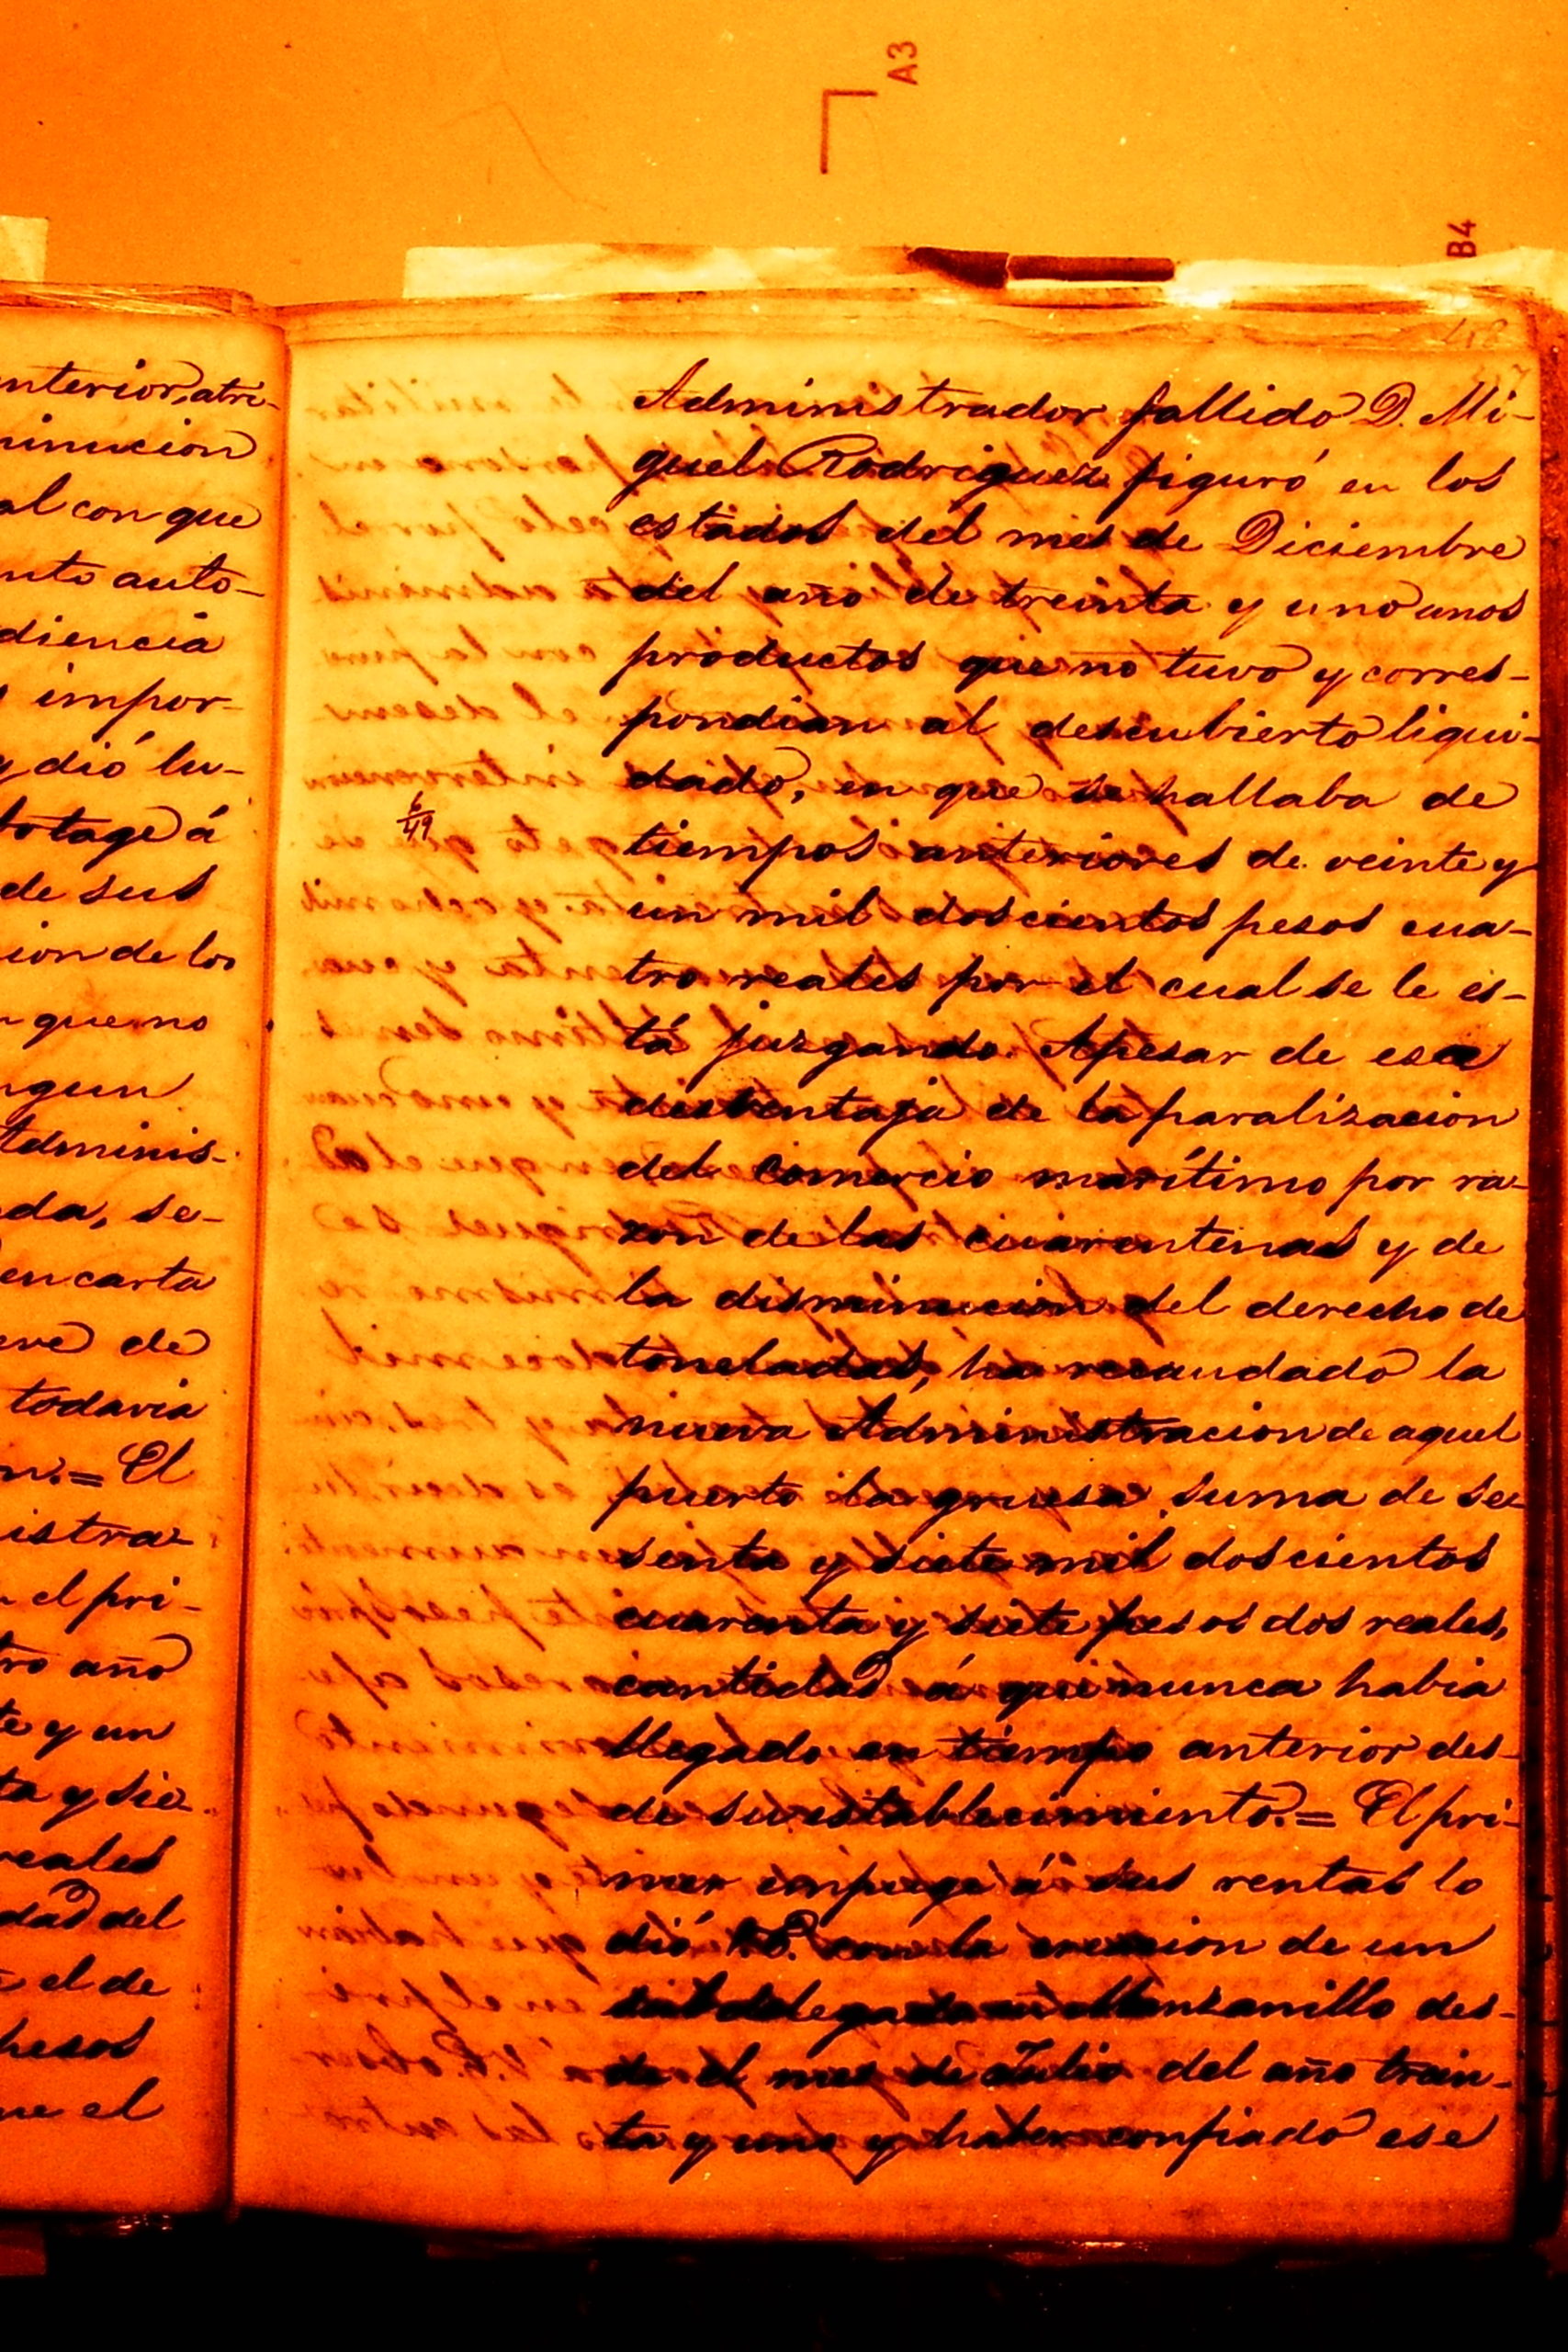 A3
B4
nterior, atri-
minucion
al con que
nto auto-
diencia
impor-
y dió lu-
botage á
de sus
ion de los
que no
ngun
Adminis-
da, se-
en carta
eve de
todavia
n.= El
istra-
el pri-
tro año
te y un
ta y sie-
reales
dad del
el de
pesos
ue el
Administrador fallido D. Mi-
guel Rodriguez figuró en los
estados del mes de Diciembre
del año de treinta y uno unos
productos que no tuvo y corres-
pondian al descubierto liqui-
dado, en que se hallaba de
6/49
tiempos anteriores de veinte y
un mil doscientos pesos cua-
tro reales por el cual se le es-
tá juzgando. Apesar de esa
desventaja de la paralizacion
del comercio marítimo por ra-
zon de las cuarentenas y de
la disminucion del derecho de
toneladas, ha recaudado la
nueva Administracion de aquel
puerto la gruesa suma de se-
senta y siete mil doscientos
cuarenta y siete pesos dos reales,
cantidad á que nunca habia
llegado en tiempo anterior des-
de su establecimiento.= El pri-
mer empuge á sus rentas lo
dió V.E. con la creacion de un
Manzanillo des-
de el mes de Julio del año trein-
ta y uno y haber confiado ese